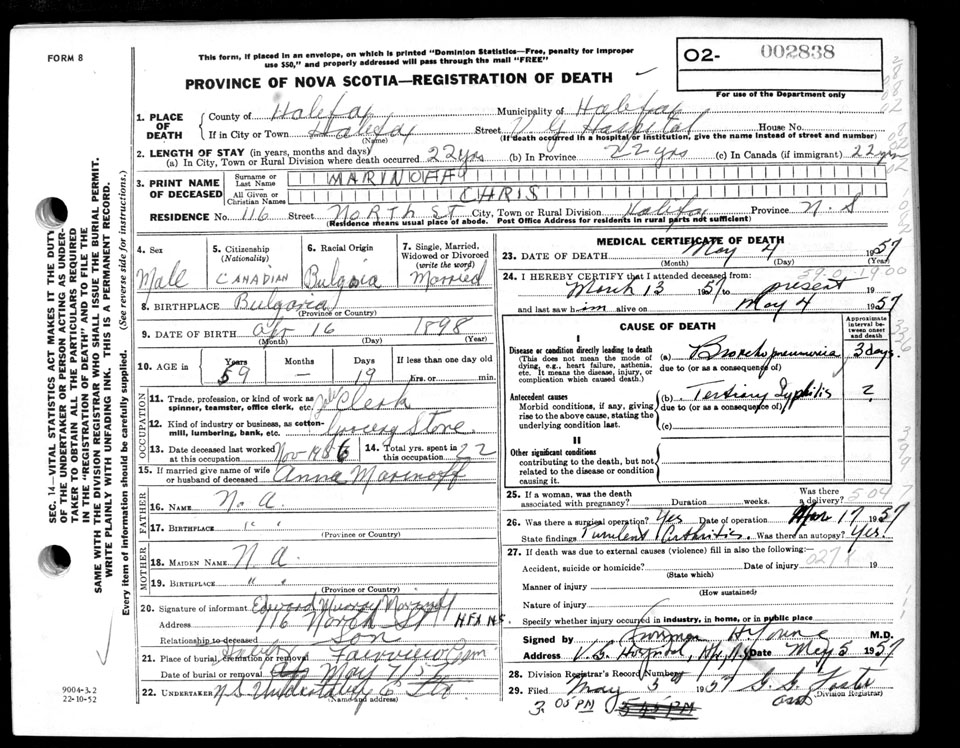 FORM 8
This form, if placed in an envelope, on which is printed "Dominion Statistics—Free, penalty for improper
use $50," and properly addressed will pass through the mail "FREE"
PROVINCE OF NOVA SCOTIA—REGISTRATION OF DEATH
O2- 002838
For use of the Department only
1. PLACE OF DEATH
County of Halifax Municipality of Halifax
If in City or Town Halifax Street V G Hospital House No.
(Name) (If death occurred in a hospital or institution, give the name instead of street and number)
2. LENGTH OF STAY (in years, months and days)
(a) In City, Town or Rural Division where death occurred 22 yrs (b) In Province 22 yrs (c) In Canada (if immigrant) 22 yrs
3. PRINT NAME OF DECEASED
Surname or Last Name MARINOFF
All Given or Christian Names CHRIS
RESIDENCE No. 116 Street NORTH ST City, Town or Rural Division Halifax Province N. S
(Residence means usual place of abode. Post Office Address for residents in rural parts not sufficient)
4. Sex
Male
5. Citizenship
(Nationality)
CANADIAN
6. Racial Origin
Bulgaria
7. Single, Married, Widowed or Divorced
(write the word)
Married
8. BIRTHPLACE Bulgaria
(Province or Country)
9. DATE OF BIRTH Apr 16 1898
(Month) (Day) (Year)
10. AGE in
Years Months Days If less than one day old
59 — 19 hrs. or min.
OCCUPATION
11. Trade, profession, or kind of work as
spinner, teamster, office clerk, etc. Clerk
12. Kind of industry or business, as cotton-
mill, lumbering, bank, etc. Grocery Store
13. Date deceased last worked at this occupation Nov 1956
14. Total yrs. spent in this occupation 22
15. If married give name of wife
or husband of deceased Anna Marinoff
FATHER
16. Name N. A
17. Birthplace " "
(Province or Country)
MOTHER
18. Maiden Name N. A
19. Birthplace " "
(Province or Country)
20. Signature of informant Edward Murray Marinoff
Address 116 North St HFX N.S.
Relationship to deceased Son
21. Place of burial, cremation or removal Fairview
Date of burial or removal May 7/57
22. UNDERTAKER N.S. Undertaking Co Ltd
(Name and address)
MEDICAL CERTIFICATE OF DEATH
23. DATE OF DEATH May 4 1957
(Month) (Day) (Year)
24. I HEREBY CERTIFY that I attended deceased from:
March 13 1957 to present 19
and last saw him alive on May 4 1957
CAUSE OF DEATH
Approximate interval between onset and death
I
Disease or condition directly leading to death
(This does not mean the mode of
dying, e.g., heart failure, asthenia,
etc. It means the disease, injury, or
complication which caused death.)
(a) Bronchopneumonia 3 days.
due to (or as a consequence of)
Antecedent causes
Morbid conditions, if any, giving
rise to the above cause, stating the
underlying condition last.
(b) Tertiary Syphilis ?
due to (or as a consequence of)
(c)
II
Other significant conditions
contributing to the death, but not
related to the disease or condition
causing it.
25. If a woman, was the death
associated with pregnancy? Duration weeks. Was there a delivery?
26. Was there a surgical operation? Yes Date of operation Mar 17 1957
State findings Purulent Arthritis. Was there an autopsy? Yes.
27. If death was due to external causes (violence) fill in also the following:—
Accident, suicide or homicide? Date of injury 19
(State which)
Manner of injury
(How sustained)
Nature of injury
Specify whether injury occurred in industry, in home, or in public place
Signed by M.D.
Address V. G. Hospital, Date May 5 1957
28. Division Registrar's Record Number
29. Filed May 1957 G. G. Foster
(Division Registrar)
3.05 PM
SEC. 14—VITAL STATISTICS ACT MAKES IT THE DUTY
OF THE UNDERTAKER OR PERSON ACTING AS UNDER-
TAKER TO OBTAIN ALL THE PARTICULARS REQUIRED
IN THE "REGISTRATION OF DEATH" AND TO FILE THE
SAME WITH THE DIVISION REGISTRAR WHO SHALL ISSUE THE BURIAL PERMIT.
WRITE PLAINLY WITH UNFADING INK. THIS IS A PERMANENT RECORD.
Every item of information should be carefully supplied. (See reverse side for instructions.)
9004-3.2
22-10-52